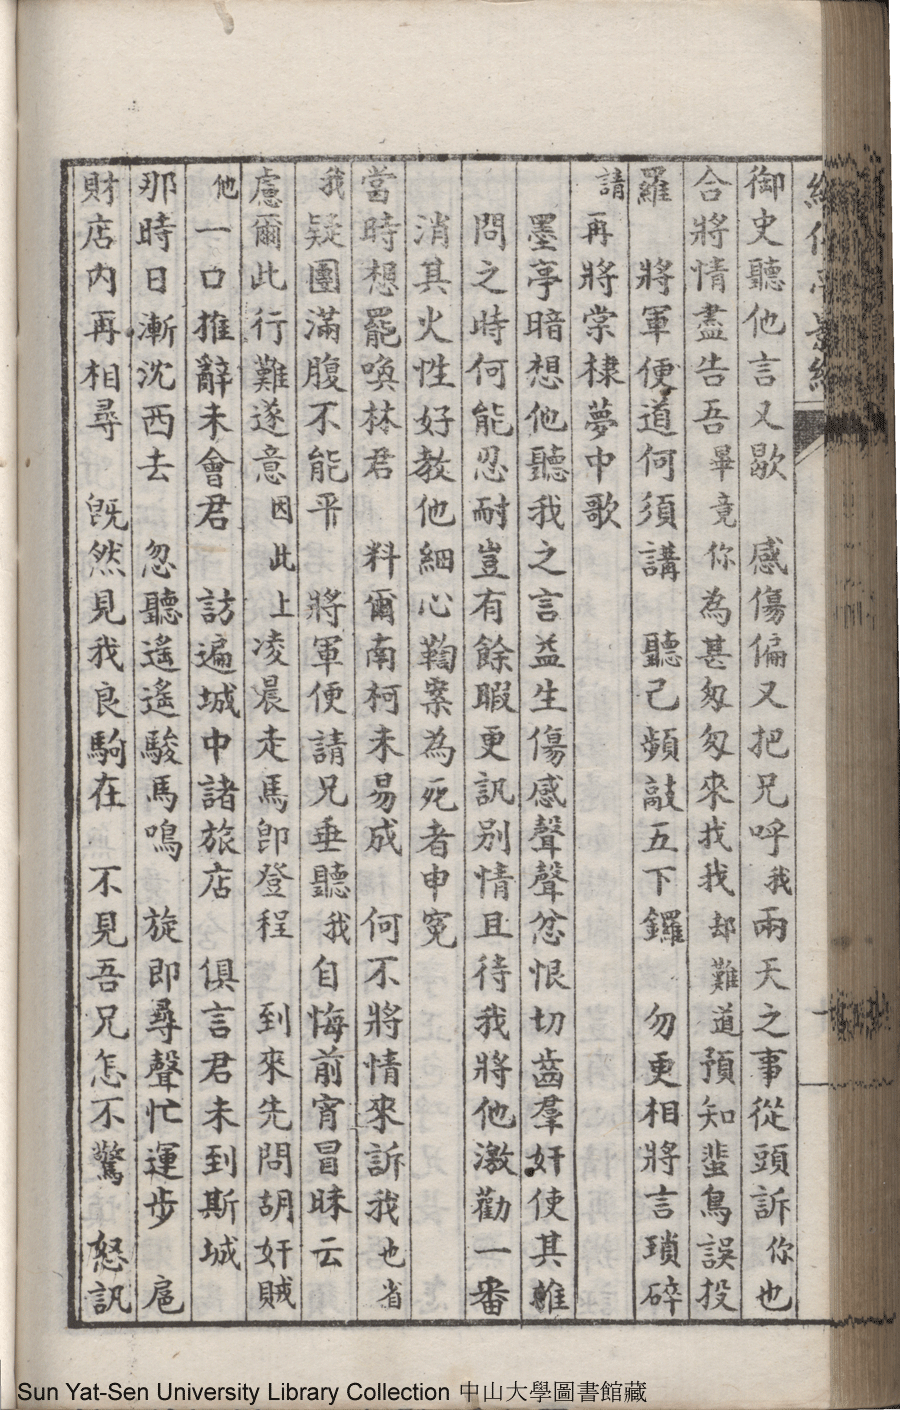 御史聽他言又歇　感傷偏又把兄呼我兩天之事從頭訴你也
合將情盡告吾畢竟你為甚匆匆來找我我卻難道預知蜚鳥誤投
羅　將軍便道何須講　聽己頻敲五下鑼　勿更相將言瑣碎
請再將棠棣夢中歌
墨亭暗想他聽我之言益生傷感聲聲忿恨切齒羣奸使其雖
問之時何能忍耐豈有餘暇更訊别情且待我將他激勸一番
消其火性好教他細心鞫案為死者申冤
當時想罷喚林君　料爾南柯未易成　何不將情來訴我也省
我疑團滿腹不能平　將軍便請兄垂聽我自悔前宵冒昧云
慮爾此行難遂意因此上凌晨走馬卽登程　到來先問胡奸賊
他一口推辭未會君　訪遍城中諸旅店　俱言君未到斯城
那時日漸沈西去　忽聽遙遙駿馬鳴　旋即尋聲忙運步　扈
財店内再相尋　旣然見我良駒在　不見吾兄怎不驚　怒訊
Sun Yat-Sen University Library Collection 中山大學圖書館藏